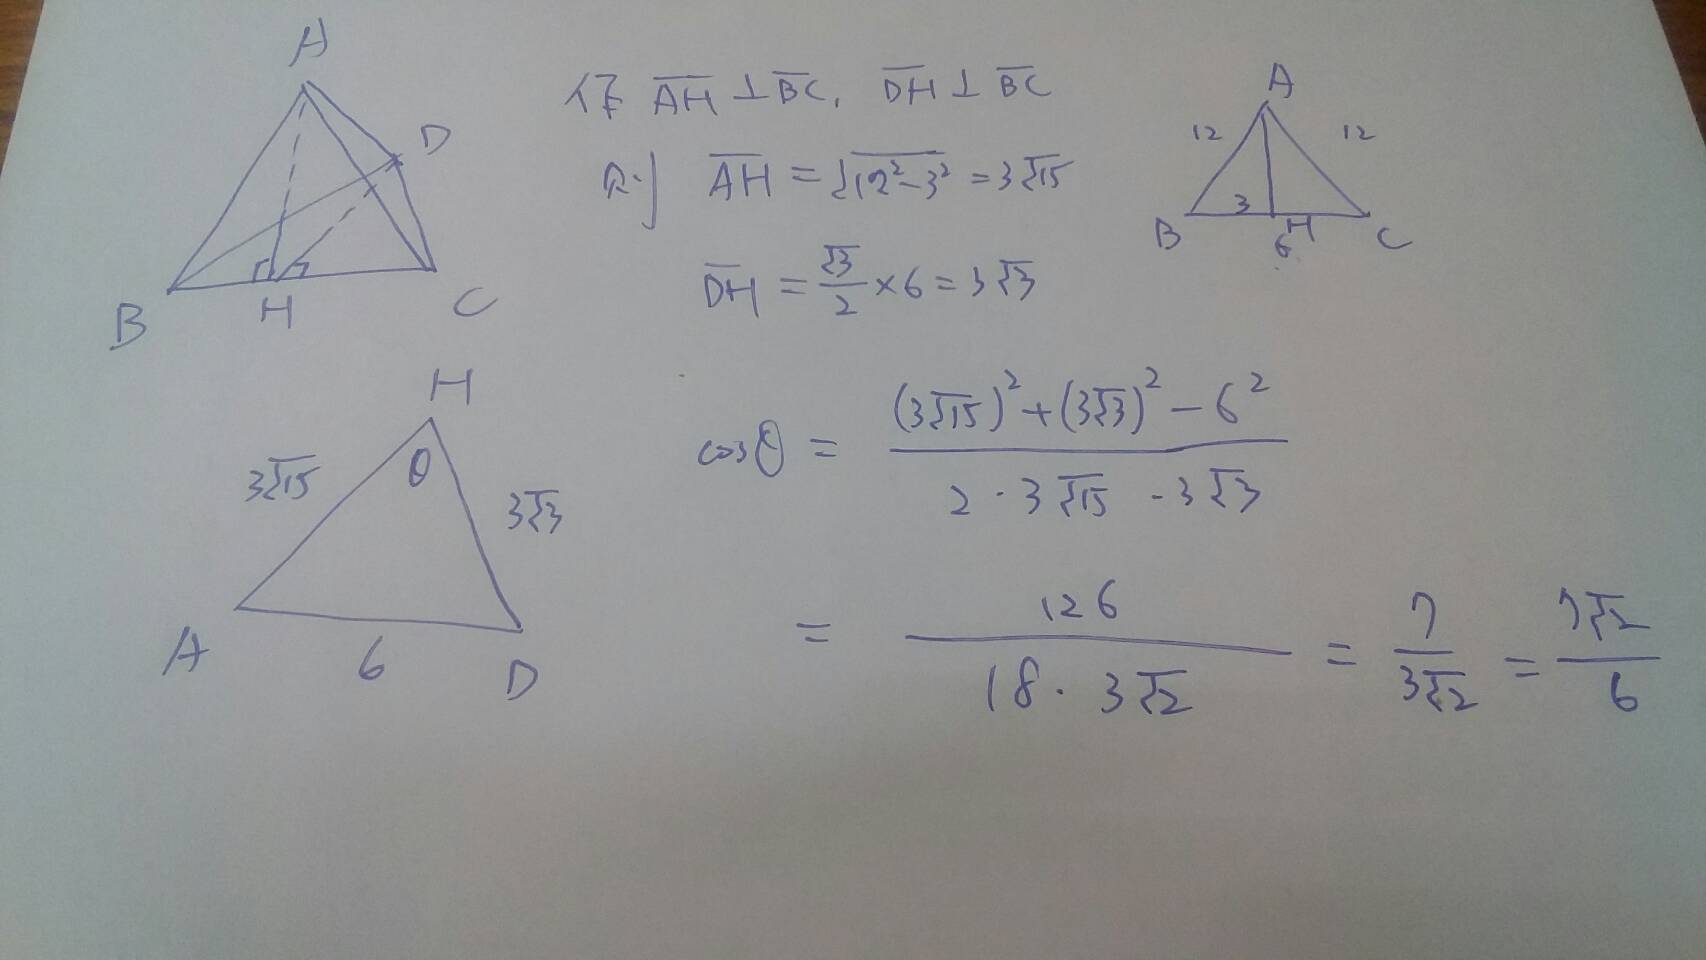 A
D
B
H
C
作 A̅H̅ ⊥ B̅C̅, D̅H̅ ⊥ B̅C̅
則 A̅H̅ = √(12²-3²) = 3√15
D̅H̅ = √3/2 × 6 = 3√3
A
12 12
3
B H C
6
H
θ
3√15 3√3
A 6 D
cosθ = ((3√15)² + (3√3)² - 6²) / (2 · 3√15 · 3√3)
= 126 / (18 · 3√2) = 7 / (3√2) = 7√2 / 6